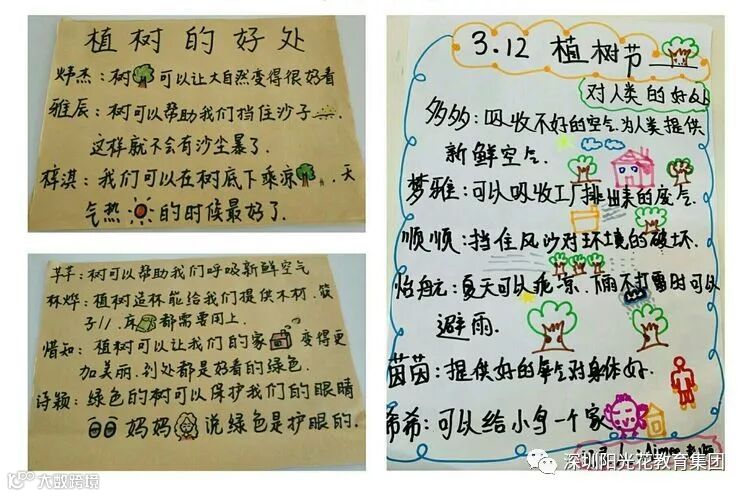 植树的好处
炜杰：树可以让大自然变得很好看
雅辰：树可以帮助我们挡住沙子
这样就不会有沙尘暴了.
梓淇：我们可以在树底下乘凉.天
气热的时候最好了.
芊芊：树可以帮助我们呼吸新鲜空气
林烨：植树造林能给我们提供木材.筷
子//.床都需要用上.
惜知：植树可以让我们的家变得更
加美丽.到处都是好看的绿色.
诗颖：绿色的树可以保护我们的眼睛
妈妈说绿色是护眼的.
3.12 植树节
对人类的好处
多多：吸收不好的空气为人类提供
新鲜空气.
梦雅：可以吸收工厂排出来的废气.
顺顺：挡住风沙对环境的破坏.
夏天可以乘凉.下雨不打雷时可以
避雨.
茵茵：提供好的氧气对身体好.
希希：可以给小鸟一个家
大数跨境
深圳阳光花教育集团